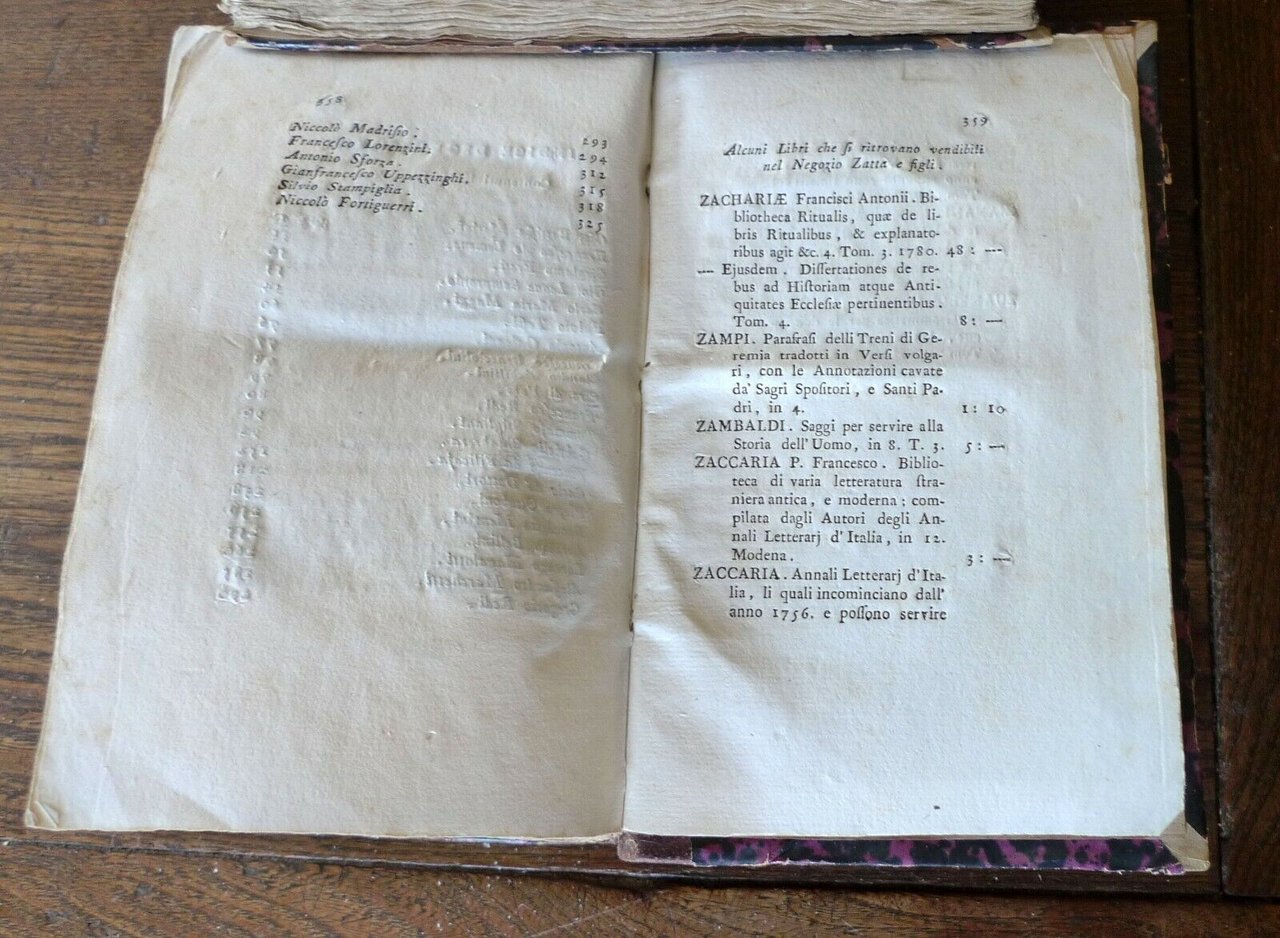 358
Niccolò Madriſio . 293
Franceſco Lorenzini. 294
Antonio Sforza . 312
Gianfranceſco Uppezzinghi . 315
Silvio Stampiglia . 318
Niccolò Fortiguerri . 325
359
Alcuni Libri che ſi ritrovano vendibili
nel Negozio Zatta e figli .
ZACHARIÆ Franciſci Antonii . Bi-
bliotheca Ritualis, quæ de li-
bris Ritualibus, & explanato-
ribus agit &c. 4. Tom. 3. 1780. 48 : —
— Ejusdem . Diſſertationes de re-
bus ad Hiſtoriam atque Anti-
quitates Eccleſiæ pertinentibus .
Tom. 4. 8 : —
ZAMPI. Parafraſi delli Treni di Ge-
remia tradotti in Verſi volga-
ri , con le Annotazioni cavate
da' Sagri Spoſitori , e Santi Pa-
dri , in 4. 1 : 10
ZAMBALDI . Saggi per servire alla
Storia dell' Uomo, in 8. T. 3. 5 : —
ZACCARIA P. Franceſco . Biblio-
teca di varia letteratura ſtra-
niera antica , e moderna ; com-
pilata dagli Autori degli An-
nali Letterarj d' Italia , in 12.
Modena . 3 : —
ZACCARIA . Annali Letterarj d' Ita-
lia , li quali incominciano dall'
anno 1756. e poſſono servire